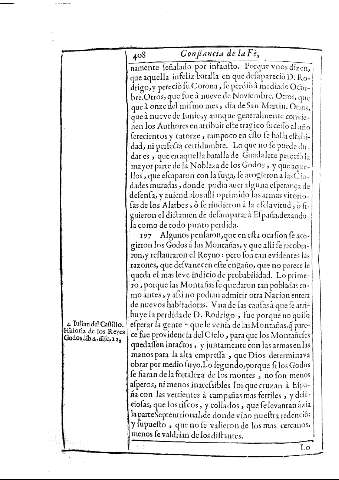 408 Constancia de la Fè,
namente señalado por infausto. Porque vnos dizen,
que aquella infeliz batalla en que desapareciò D. Ro-
drigo, y pereciò su Corona, se perdiò à mediado Octu-
bre. Otros, que fue à nueve de Noviembre. Otros, que
que à onze del mismo mes, dia de San Martin. Otros,
que à nueve de Junio, y aunque generalmente convie-
nen los Authores en atribuir este tragico sucesso al año
setecientos y catorze, tampoco en esto se halla estabi-
dad, ni perfecta certidumbre. Lo que no se puede du-
dar es, que en aquella batalla de Guadalete pereciò la
mayor parte de la Nobleza de los Godos, y que aque-
llos, que escaparon con la fuga, se acogieron à las Ciu-
dades muradas, donde podia aver alguna esperança de
defensa, y aviendo de alli oprimido las armas vitorio-
sas de los Alarbes, ò se rindieron à la esclavitud, ò si-
guieron el dictamen de desamparar à España, dexando
la como de todo punto perdida.
197 Algunos pensaron, que en esta ocasion se aco-
gieron los Godos à las Montañas, y que alli se recobra-
ron, y restauraron el Reyno: pero son tan evidentes las
razones, que desvanecen este engaño, que no parece le
queda el mas leve indicio de probabilidad. Lo prime-
ro, porque las Montañas se quedaron tan pobladas co-
mo antes, y assi no podian admitir otra Nacion entera
de nuevos habitadores. Vna de las causas à que se atri-
buye la perdida de D. Rodrigo, fue porque no quiso
esperar la gente que le venia de las Montañas, q̃ pare-
ce fue providencia del Cielo, para que los Montañeses
quedassen intactos, y juntamente con las armas en las
manos para la alta empressa, que Dios determinava
obrar por medio suyo. Lo segundo, porque si los Godos
se fiaran de la fortaleza de los montes, no son menos
asperos, ni menos inaccesibles los que cruzan à Espa-
ña con las vertientes à campañas mas fertiles, y deli-
ciosas, que los riscos, y collados, que se levantan àzia
la parte Septentrional, de donde vino nuestra redenciò:
y supuesto, que no se valieron de los mas cercanos,
menos se valdrian de los distantes.
Lo
4 Iulian del Castillo.
Historia de los Reyes
Godos, lib. 2. disc. 12.